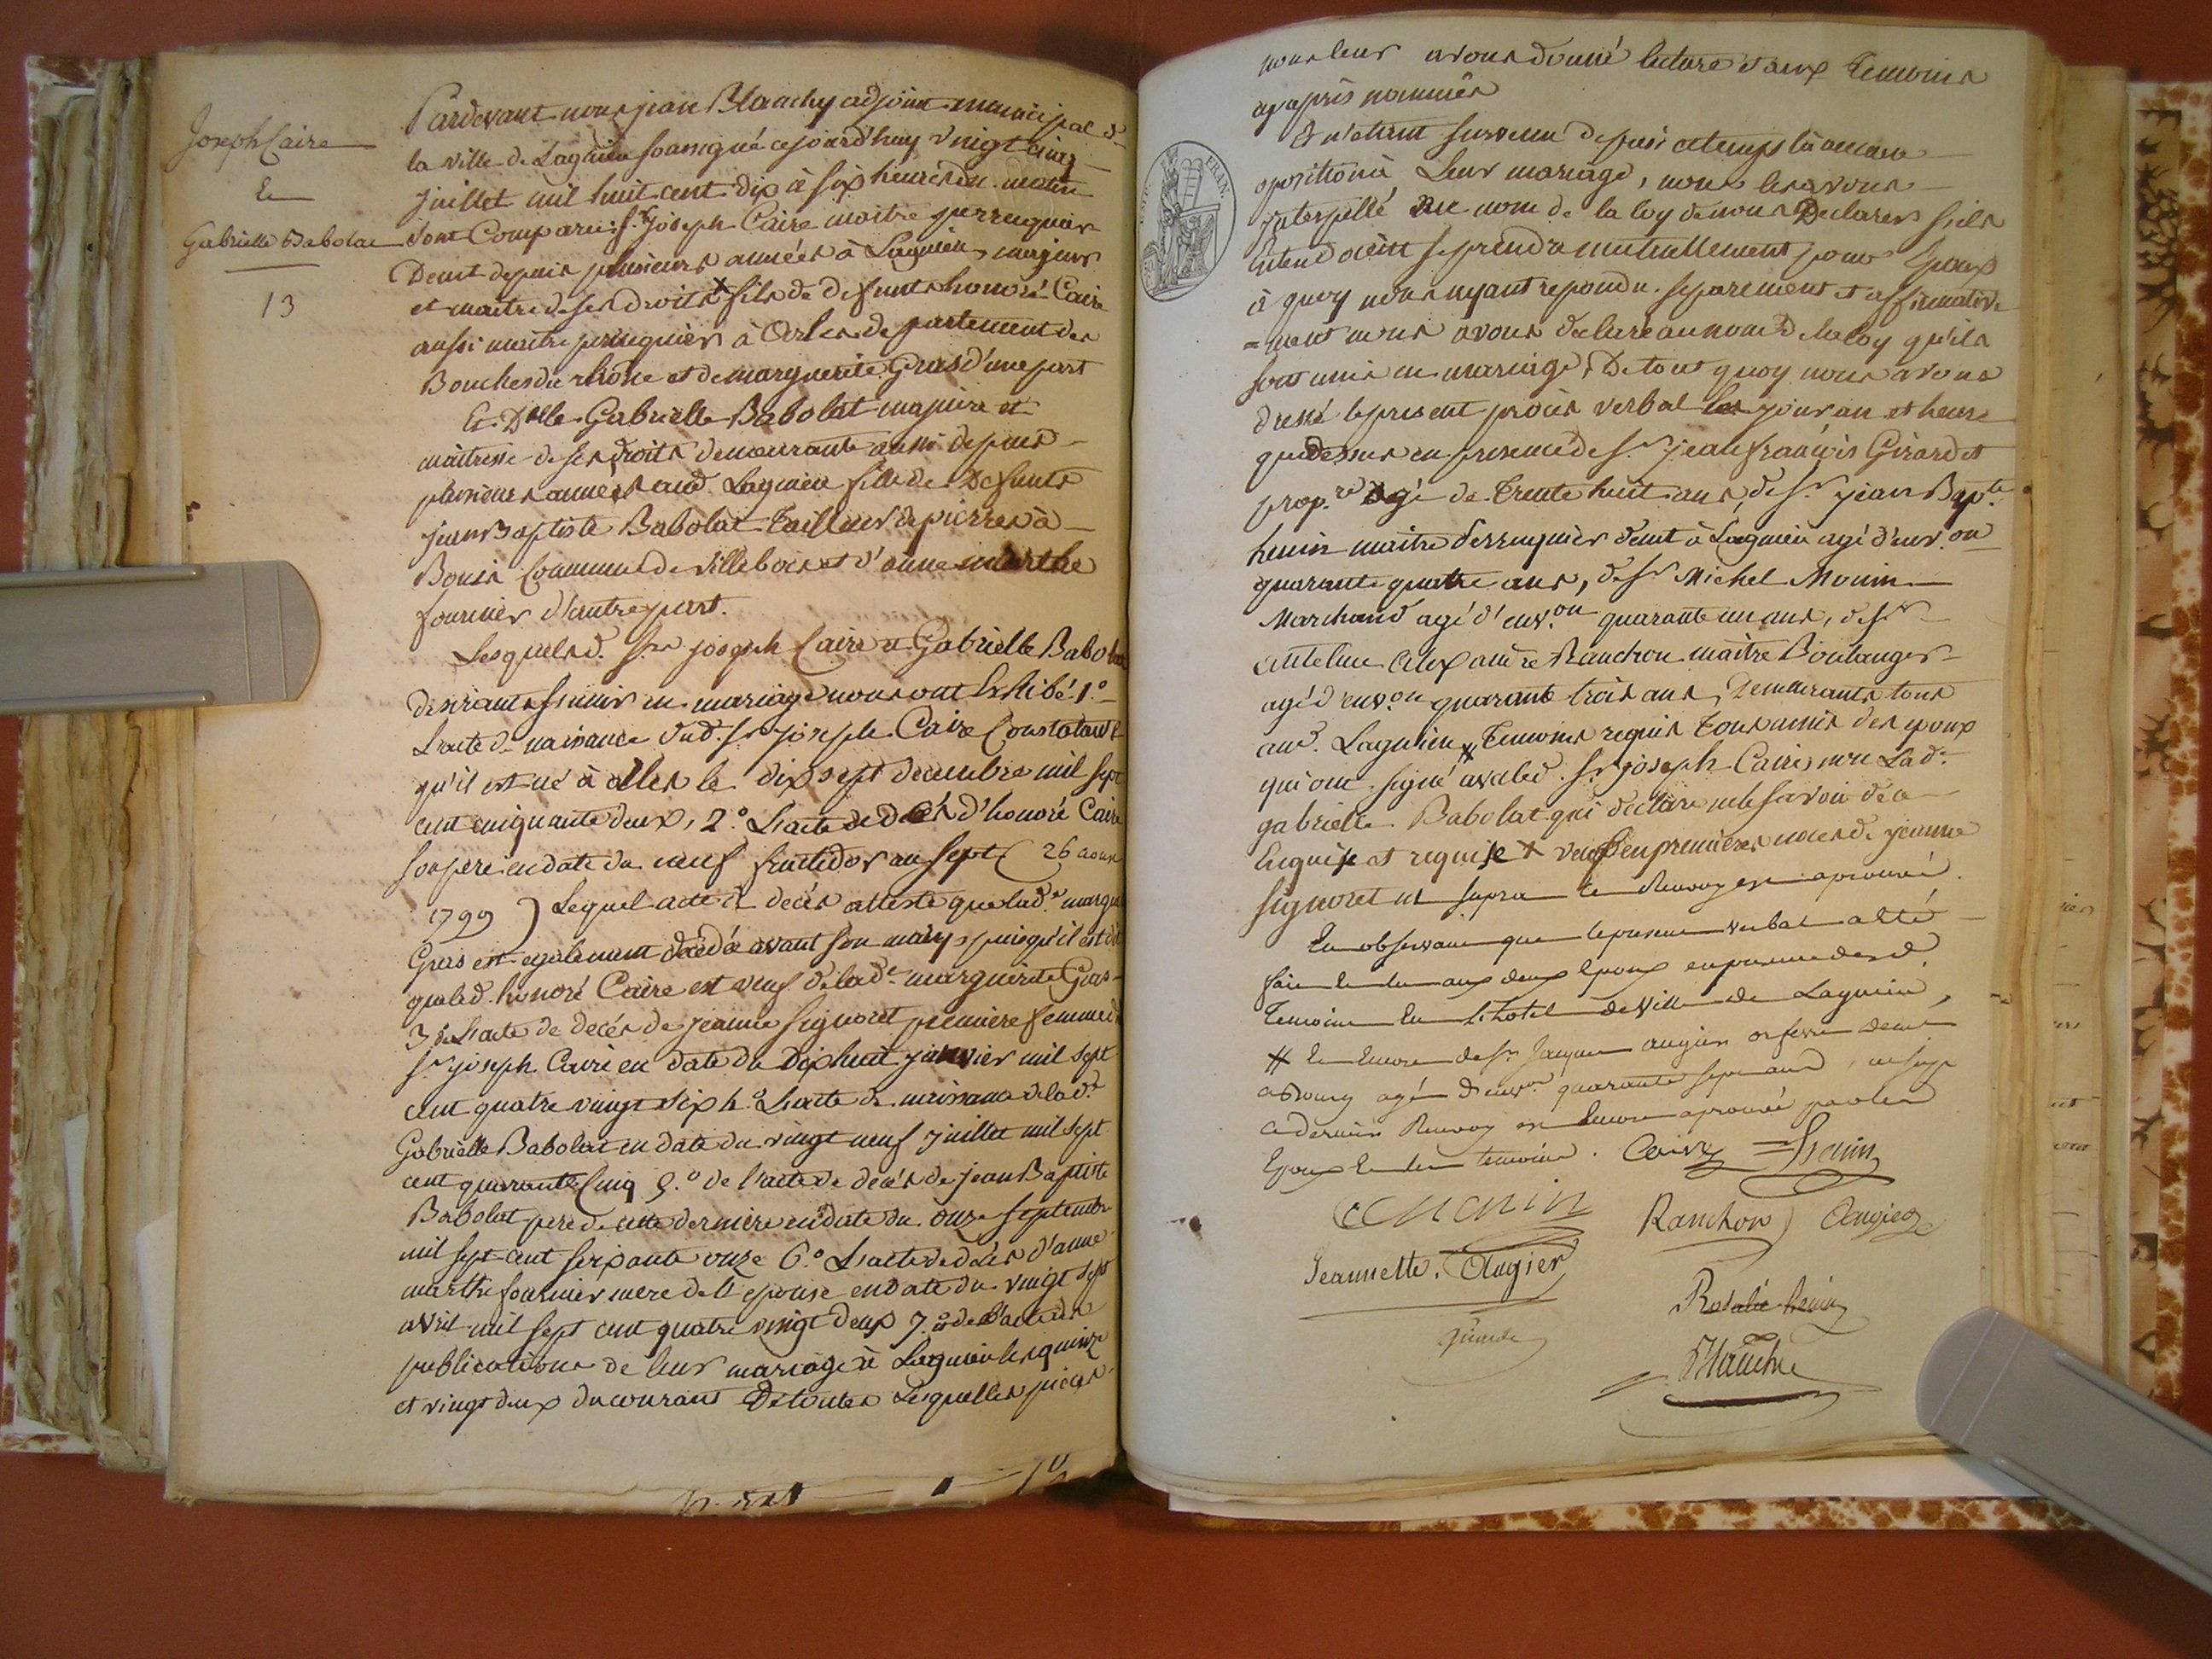 Joseph Caire
Et
Gabrielle Babolat
13
Pardevant nous jean Blanchy adjoint municipal de
la ville de Lagnieu soussigné cejourd'huy vingt cinq
juillet mil huit cent dix à six heures du matin
sont Comparus Sr. joseph Caire maitre perruquier
Demt depuis plusieurs années à Lagnieu, majeur
et maitre de ses droits X fils de defunts honoré Caire
aussi maitre perruquier à Arles departement des
Bouches du rhône et de marguerite Gras d'une part
Et Dlle Gabrielle Babolat majeure et
maitresse de ses droits demeurante aussi depuis
plusieurs années aud. Lagnieu fille de Defunts
jean Baptiste Babolat Tailleur de pierres à
Bouis Commune de villebois et d'anne marthe
fournier d'autre part.
Lesquels d. Srs joseph Caire et Gabrielle Babolat
desirants s'unir en mariage nous ont Exhibé 1.o
L'acte de naissance dud. Sr joseph Caire Constatant
qu'il est né à Arles le dix sept decembre mil sept
cent cinquante deux, 2.o L'acte de décès d'honoré Caire
son pere en date du neuf fructidor an sept ( 26 aoust
1799 ) Lequel acte de decès atteste que lad.e margte
Gras est egalement décédée avant son mary, puisqu'il est dit
que led. honoré Caire est veuf de lad.e marguerite Gras
3.o L'acte de decès de jeanne Signoret premiere femme du
Sr joseph Caire en date du Dix huit janvier mil sept
cent quatre vingt dix 4.o L'acte de naissance de lad.e
Gabrielle Babolat en date du vingt neuf juillet mil sept
cent quarante Cinq 5.o de l'acte de décès de jean Baptiste
Babolat pere de cette derniere en date du onze septembre
mil sept cent soixante onze 6.o L'acte de décès d'anne
marthe fournier mere de l'epouse en date du vingt sept
avril mil sept cent quatre vingt deux 7.o de l'acte des
publications de leur mariage à Lagnieu les quinze
et vingt deux du courant De toutes Lesquelles pièces
nous leur avons donné lecture et aux Temoins
cy après nommés
Et n'etant survenu depuis ce temps là aucune
oposition à Leur mariage, nous les avons
interpellé au nom de la loy de nous Declarer s'ils
Entendoient se prendre mutuellement pour Epoux
à quoy nous ayant repondu separement et affirmative
=ment nous avons declaré au nom de la loy qu'ils
sont unis en mariage, De tout quoy nous avons
dressé le present procès verbal les jour an et heure
que dessus en presence de Sr. jean françois Girardet
prop.re agé de Trente huit ans, de Sr jean Bapte
henin maitre Perruquier demt à Lagnieu agé d'env.on
quarante quatre ans, de Sr Michel Monin
Marchand agé d'env.on quarante un ans, de Sr
antelme Alexandre Ranchon maître Boulanger
agé d'env.on quarante trois ans, Demeurants tous
aud. Lagnieu # Temoins requis tous amis des epoux
qui ont signé avec led. Sr joseph Caire, non Lad.e
gabrielle Babolat qui declare ne le savoir de ce
Enquise et requise X veuf en premieres noces de jeanne
Signoret ut supra Le Renvoy est aprouvé.
En observant que le present verbal a été
fait et lu aux deux Epoux en presence desd.
Temoins En L'hotel de Ville de Lagnieu,
# Et Encore de Sr Jacques augier orfevre demt
a Bourg agé d'envon quarante sept ans,
ce dernier Renvoy est Encore aprouvé par les
Epoux et les temoins. Caire = henin
Monin Ranchon Augier
Jeannette Augier
Rosalie henin
Blanchy